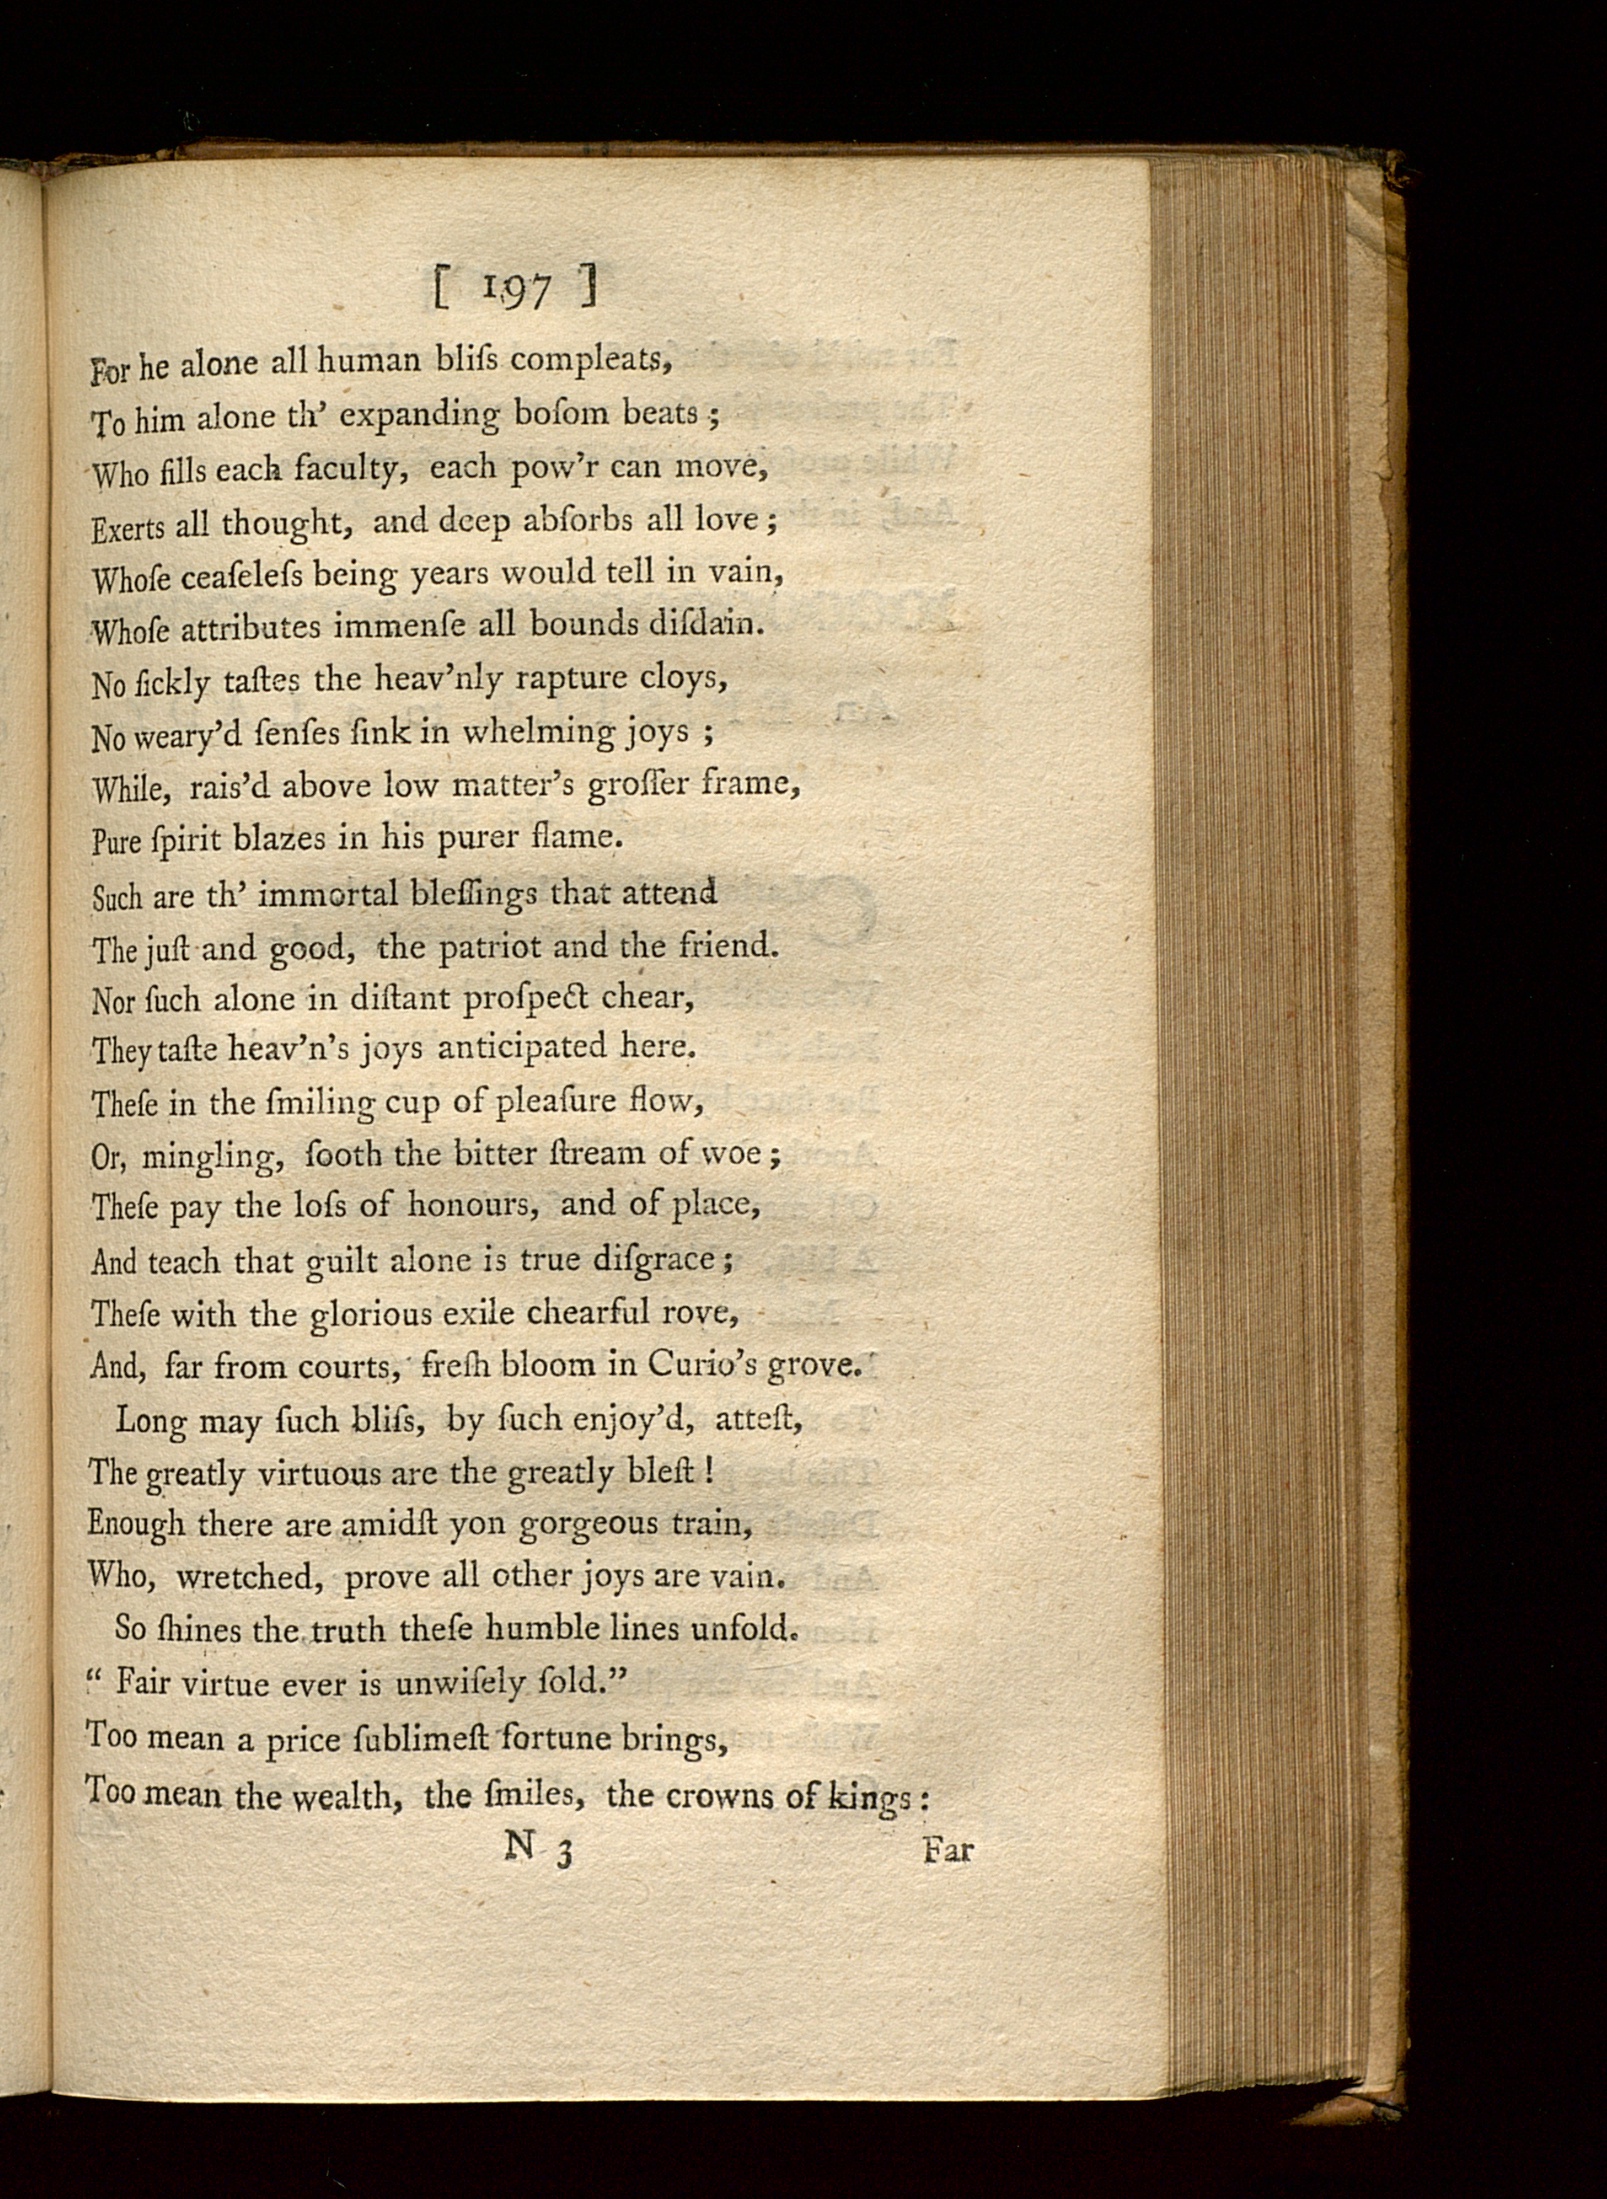 [ 197 ]
For he alone all human bliſs compleats,
To him alone th' expanding boſom beats ;
Who fills each faculty, each pow'r can move,
Exerts all thought, and deep abſorbs all love ;
Whoſe ceaſeleſs being years would tell in vain,
Whoſe attributes immenſe all bounds diſdain.
No ſickly taſtes the heav'nly rapture cloys,
No weary'd ſenſes ſink in whelming joys ;
While, rais'd above low matter's groſſer frame,
Pure ſpirit blazes in his purer flame.
Such are th' immortal bleſſings that attend
The juſt and good, the patriot and the friend.
Nor ſuch alone in diſtant proſpect chear,
They taſte heav'n's joys anticipated here.
Theſe in the ſmiling cup of pleaſure flow,
Or, mingling, ſooth the bitter ſtream of woe ;
Theſe pay the loſs of honours, and of place,
And teach that guilt alone is true diſgrace ;
Theſe with the glorious exile chearful rove,
And, far from courts, freſh bloom in Curio's grove.
Long may ſuch bliſs, by ſuch enjoy'd, atteſt,
The greatly virtuous are the greatly bleſt !
Enough there are amidſt yon gorgeous train,
Who, wretched, prove all other joys are vain.
So ſhines the truth theſe humble lines unfold.
“ Fair virtue ever is unwiſely ſold.”
Too mean a price ſublimeſt fortune brings,
Too mean the wealth, the ſmiles, the crowns of kings :
N 3 Far